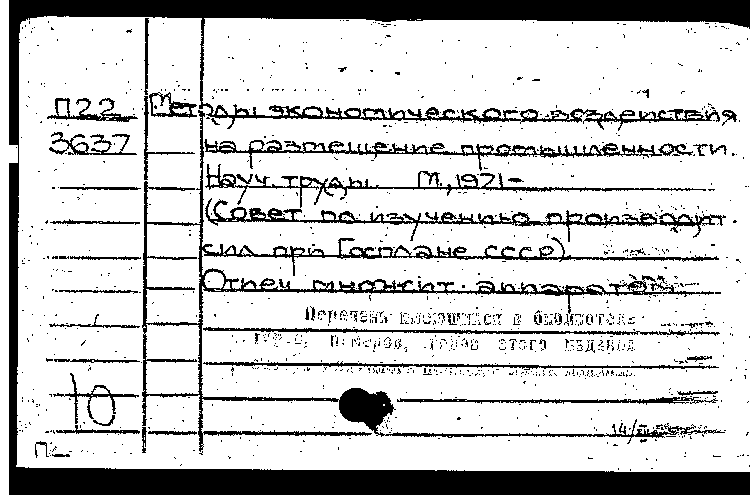 П22 Методы экономического воздействия
3637 на размещение промышленности.
Науч. труды. М., 1971-
(Совет по изучению производит.
сил при Госплане СССР)
Отпеч. множит. аппаратом
Перечень имеющихся в библиотеке
номеров, годов этого издания
10
14/